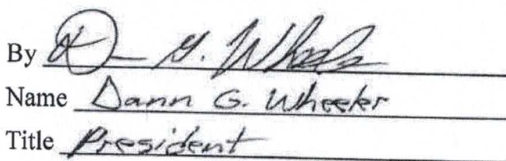 By D G. Wheeler
Name Dann G. Wheeler
Title President